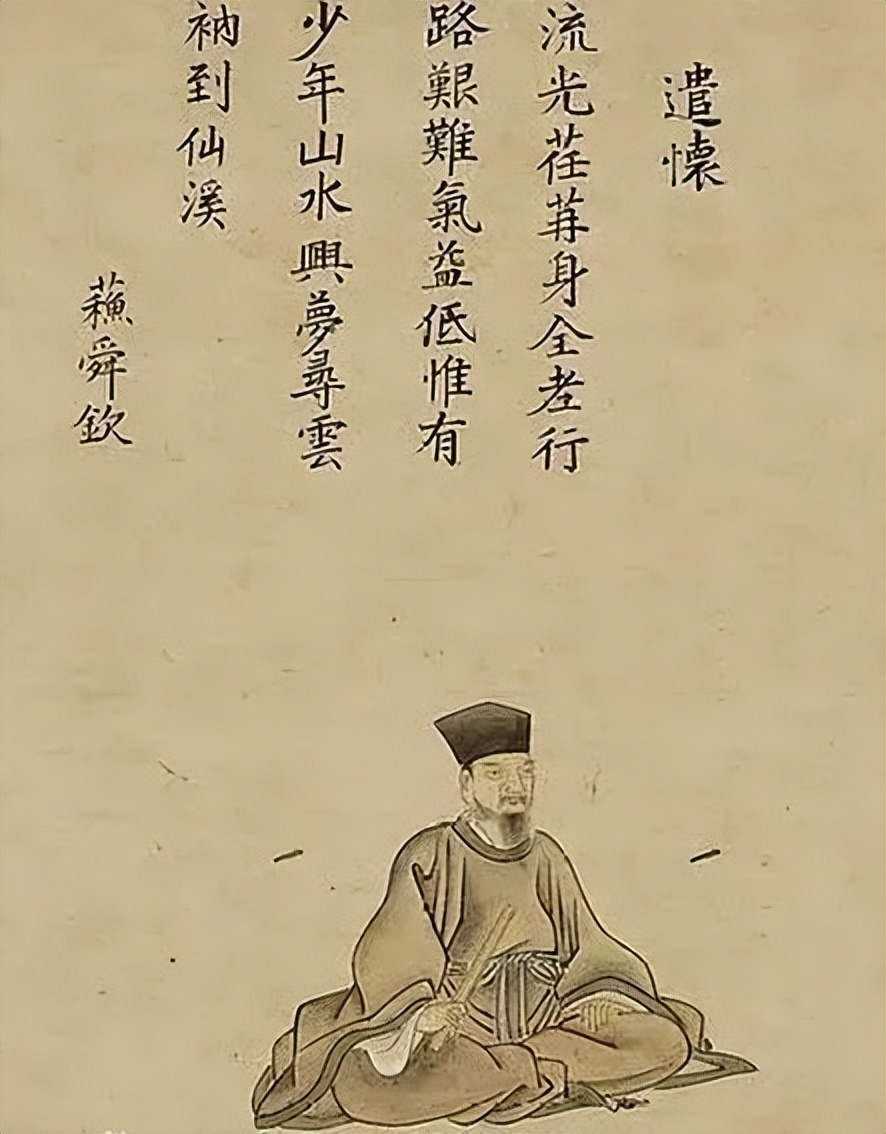 遣懷
流光荏苒身全老行
路艱難氣益低惟有
少年山水興夢尋雲
衲到仙溪
蘓舜欽